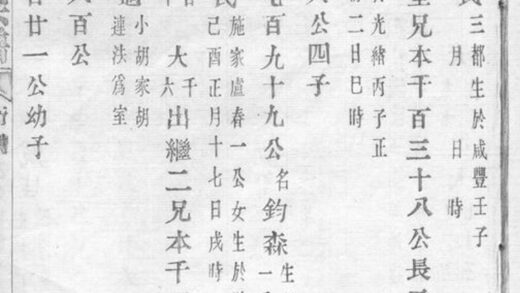 三都生於咸豐壬子
月　日　時
兄本千百三十八公長
光緒丙子正
二日巳時
公四子
百九十九公名鈞森生
一
施家盧春一公女生於
己酉正月十七日戌時
大千六出繼二兄本千
小胡家胡
連法爲室
百公
廿一公幼子